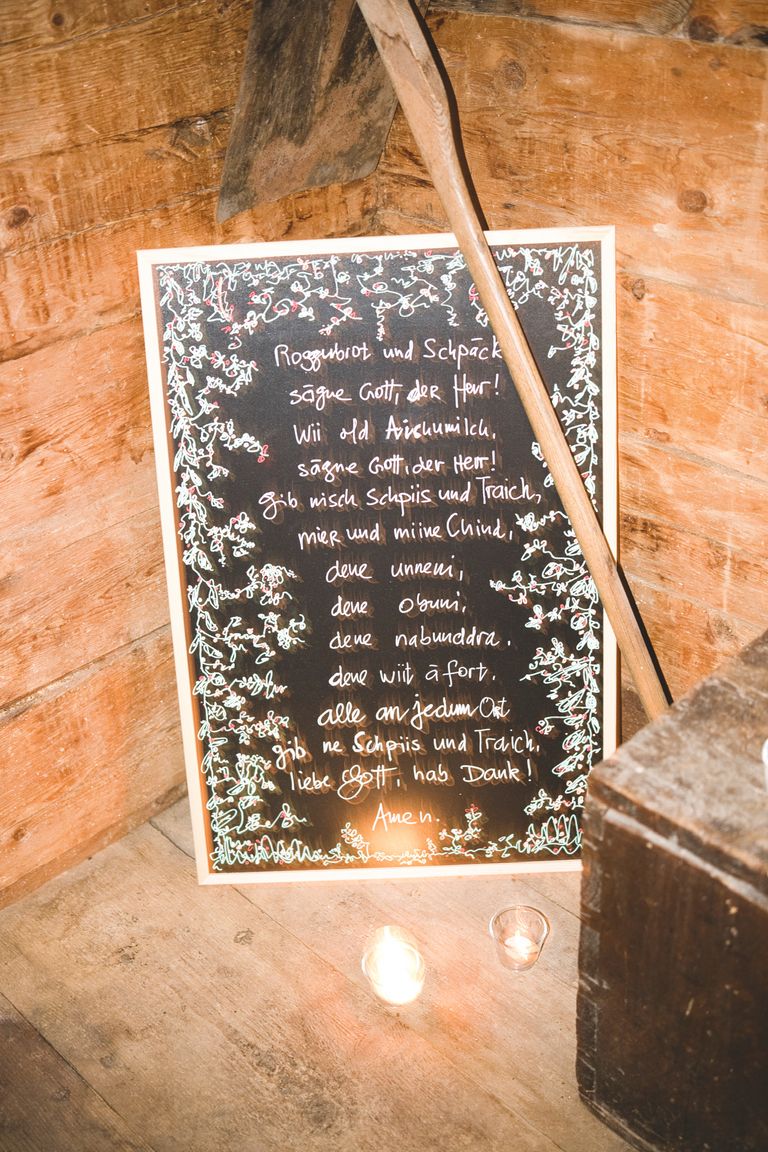 Roggubrot und Schpäck
sägne Gott, der Herr!
Wii old Aichumilch,
sägne Gott, der Herr!
gib nisch Schpiis und Traich,
mier und miine Chind,
dene unneni,
dene obuni,
dene nabunddra,
dene wiit äfort,
alle an jedum Ort
gib ne Schpiis und Traich,
liebe Gott, hab Dank!
Amen.